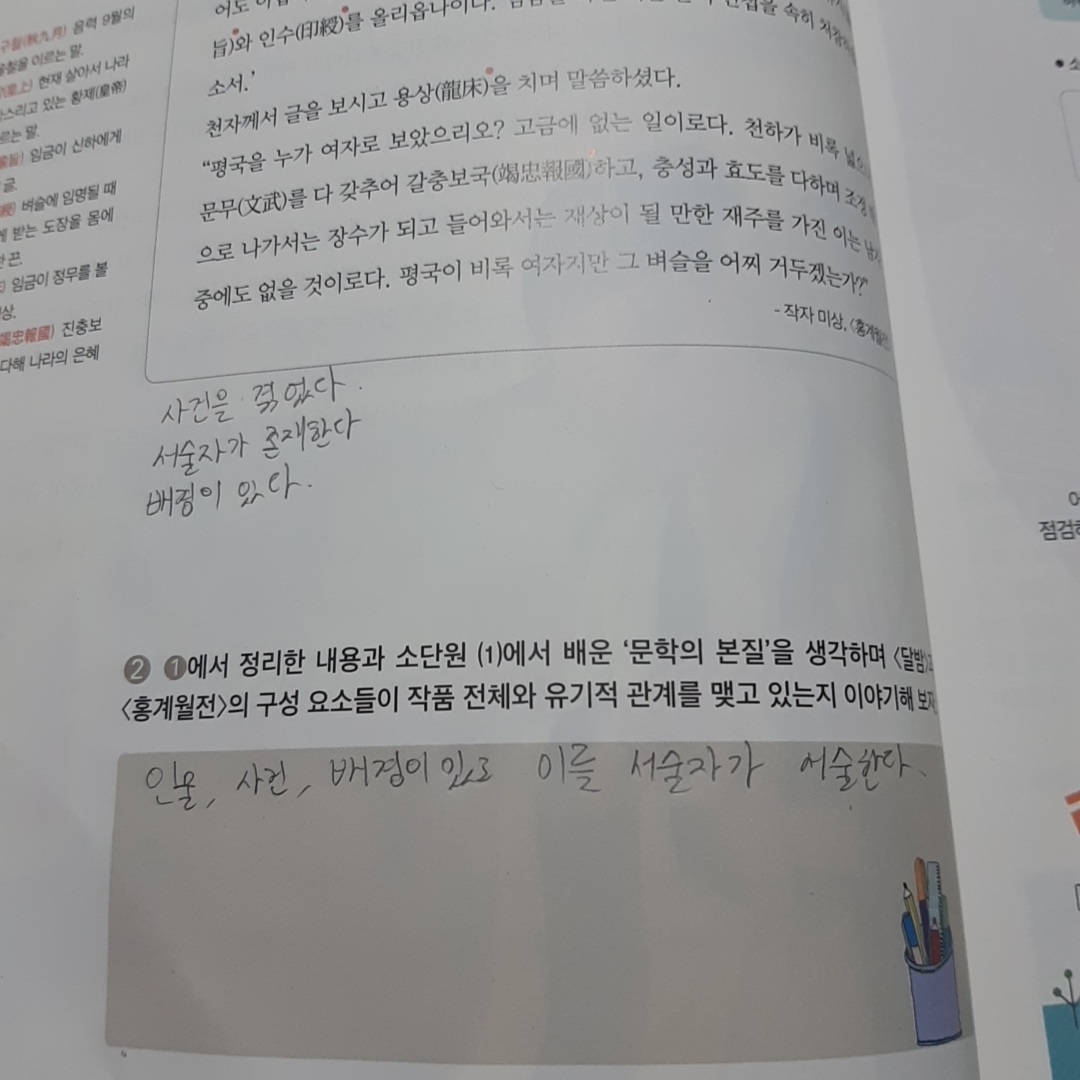 구월(秋九月) 음력 9월의
을 이르는 말.
현재 살아서 나라
스리고 있는 황제(皇帝)
르는 말.
임금이 신하에게
글.
벼슬에 임명될 때
받는 도장을 몸에
끈.
임금이 정무를 볼
상.
竭忠報國) 진충보
다해 나라의 은혜
旨)와 인수(印綬)를 올리옵나이다.
속히
소서.’
천자께서 글을 보시고 용상(龍床)을 치며 말씀하셨다.
“평국을 누가 여자로 보았으리오? 고금에 없는 일이로다. 천하가 비록
문무(文武)를 다 갖추어 갈충보국(竭忠報國)하고, 충성과 효도를 다하며 조정
으로 나가서는 장수가 되고 들어와서는 재상이 될 만한 재주를 가진 이는
중에도 없을 것이로다. 평국이 비록 여자지만 그 벼슬을 어찌 거두겠는가?”
- 작자 미상, 〈홍계월전
사건을 겪었다.
서술자가 존재한다
배경이 있다.
2 1에서 정리한 내용과 소단원 (1)에서 배운 ‘문학의 본질’을 생각하며 〈달밤〉과
〈홍계월전〉의 구성 요소들이 작품 전체와 유기적 관계를 맺고 있는지 이야기해 보자
인물, 사건, 배경이 있고 이를 서술자가 서술한다.
점검하